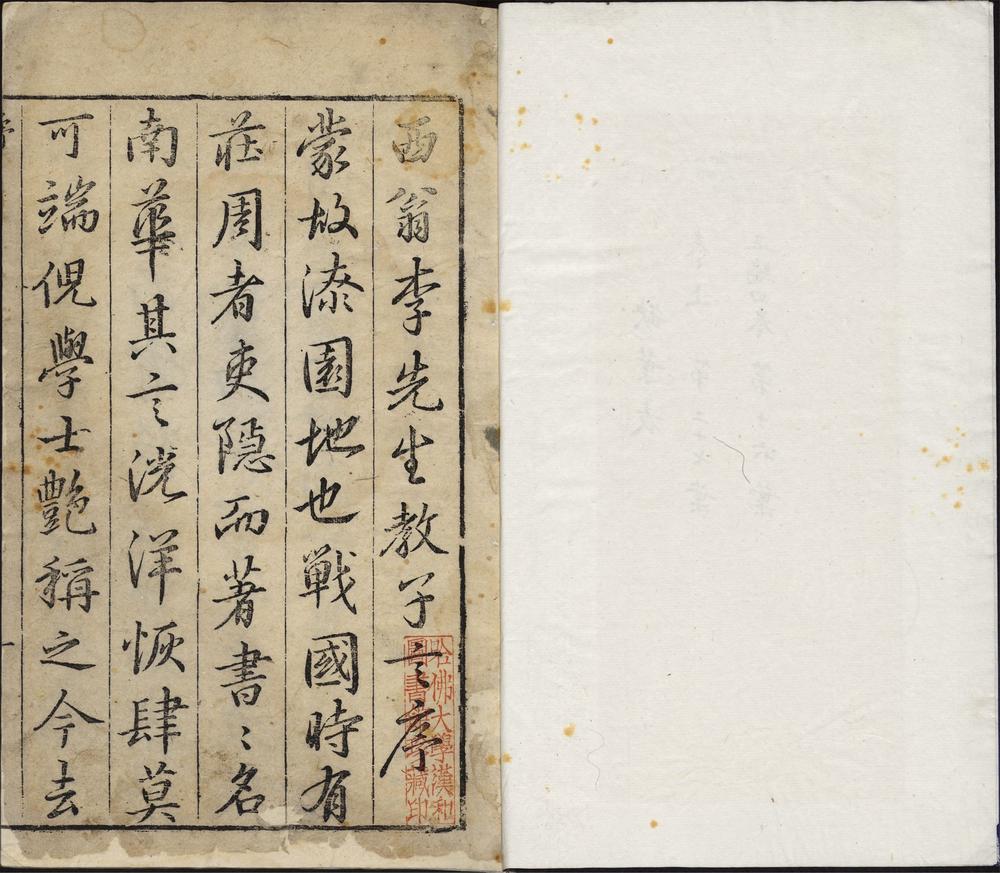 西翁李先生教子言序
蒙故漆園地也戰國時有
莊周者吏隱而著書〻名
南華其言洸洋恢肆莫
可端倪學士艷稱之今去
哈佛大學漢和
圖書館珍藏印